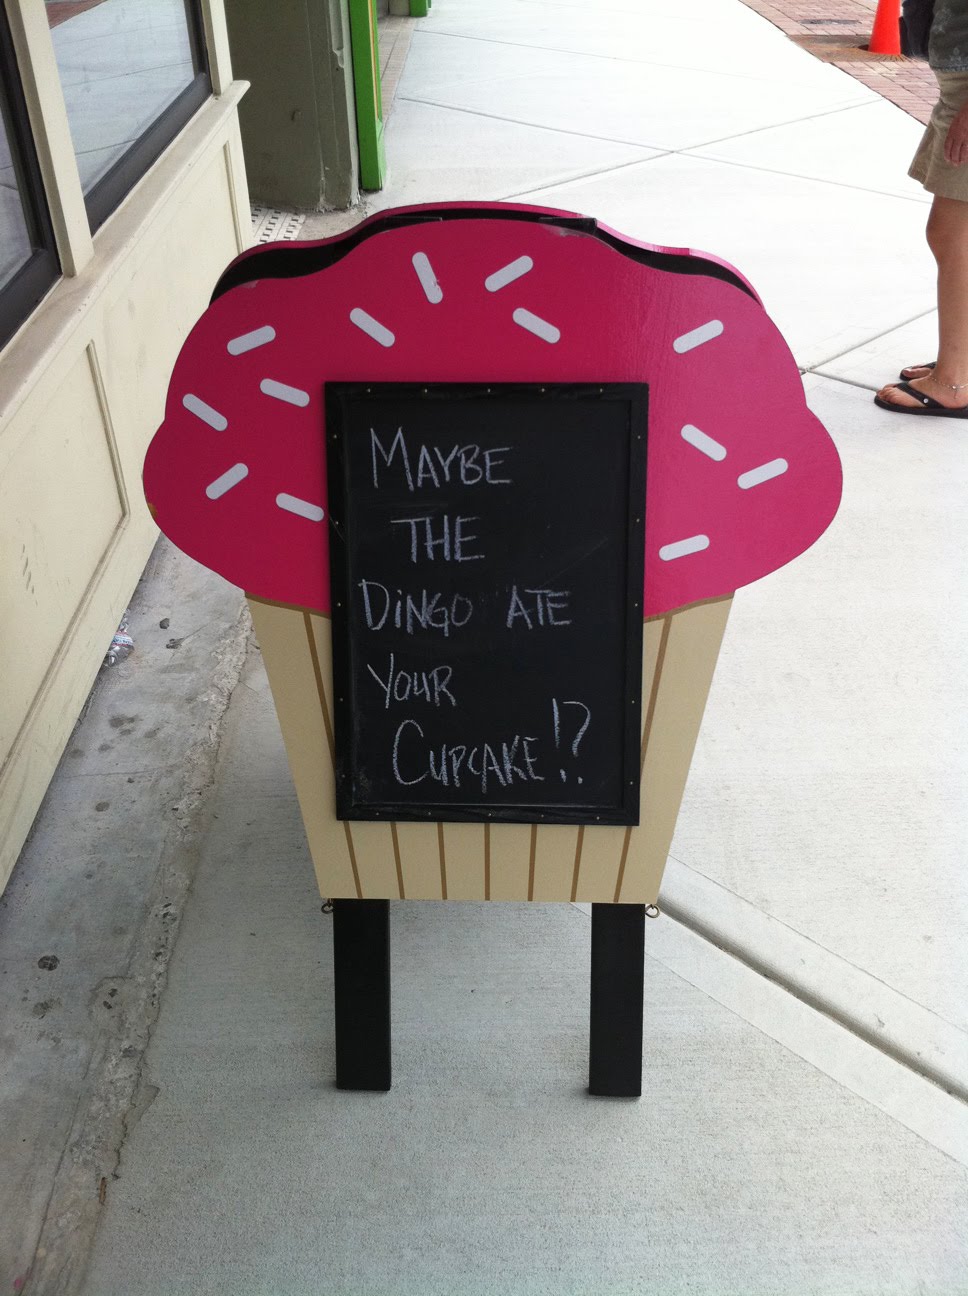 MAYBE
THE
DiNGO ATE
YOUR
CUPCAKE!?